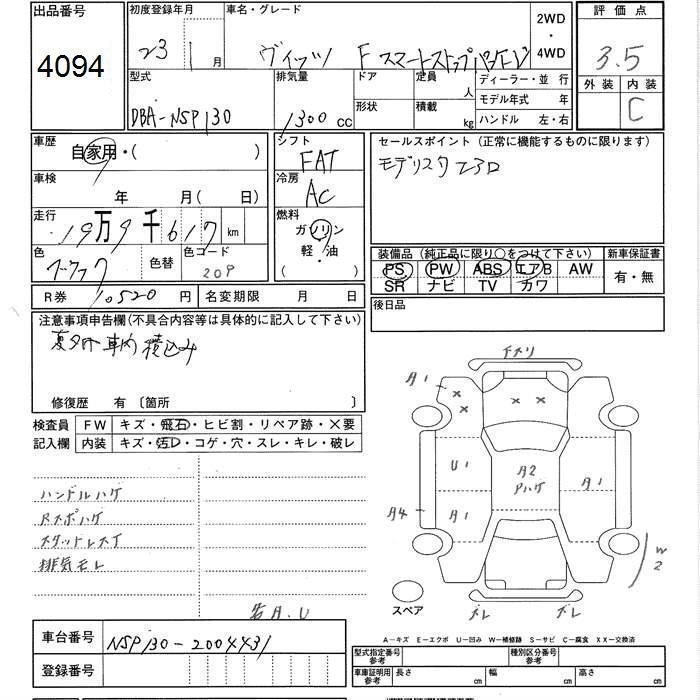 出品番号
4094
初度登録年月
23 年 1 月
車名・グレード
ヴィッツ F スマートストップパッケージ
2WD
・
4WD
評価点
3.5
外装 内装
C
型式
DBA-NSP130
排気量
1300 cc
ドア
形状
定員
人
積載
kg
ディーラー・並行
モデル年式 年
ハンドル 左・右
車歴
自家用・( )
車検
年 月(日)
走行
19万9千617 km
色
色替
色コード
209
シフト
FAT
冷房
AC
燃料
ガソリン
軽・油
( )
セールスポイント(正常に機能するものに限ります)
モデリスタエアロ
装備品(純正品に限り○をつけて下さい)
PS PW ABS エアB AW
SR ナビ TV カワ
新車保証書
有・無
R券 10,520 円
名変期限 月 日
後日品
注意事項申告欄(不具合内容等は具体的に記入して下さい)
夏タイヤ 車内積込み
修復歴 有〔箇所 〕
検査員
記入欄
FW キズ・飛石・ヒビ割・リペア跡・×要
内装 キズ・汚レ・コゲ・穴・スレ・キレ・破レ
ハンドルハゲ
Rスポハゲ
スタッドレス了
排気モレ
各A.U
A1
U1
A2
Pハゲ
A1
A4
A1
W2
スペア
ズレ
ズレ
車台番号
NSP130-2004431
登録番号
A-キズ E-エクボ U-凹み W-補修跡 S-サビ C-腐食 XX-交換済
型式指定番号
参考
種別区分番号
参考
車庫証明用
参考
長さ cm
幅 cm
高さ cm